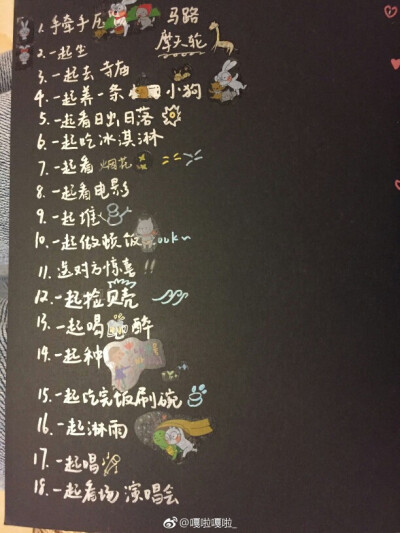 1. 手牵手 马路
2. 一起坐 摩天轮
3. 一起去 寺庙
4. 一起养一条 小狗
5. 一起看日出日落
6. 一起吃冰淇淋
7. 一起看 烟花
8. 一起看电影
9. 一起堆
10. 一起做顿饭
11. 送对方惊喜
12. 一起捡贝壳
13. 一起喝 醉
14. 一起种
15. 一起吃完饭刷碗
16. 一起淋雨
17. 一起唱
18. 一起看场 演唱会
@嘎啦嘎啦_